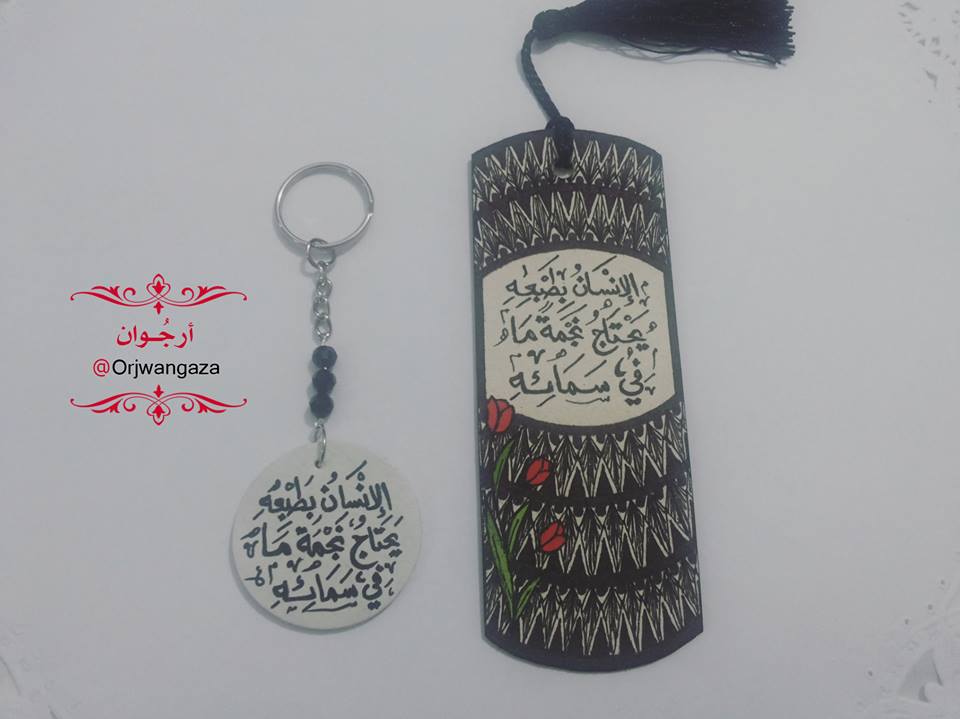 أرجُوان
@Orjwangaza
الإنْسَانُ بطَبْعِهِ
يَحْتَاجُ نَجْمَةً مَا
فِي سَمَائِهِ
الإنْسَانُ بَطَبْعِهِ
يَحَتَاجُ نَجْمَةً مَا
فِي سَمَائِهِ